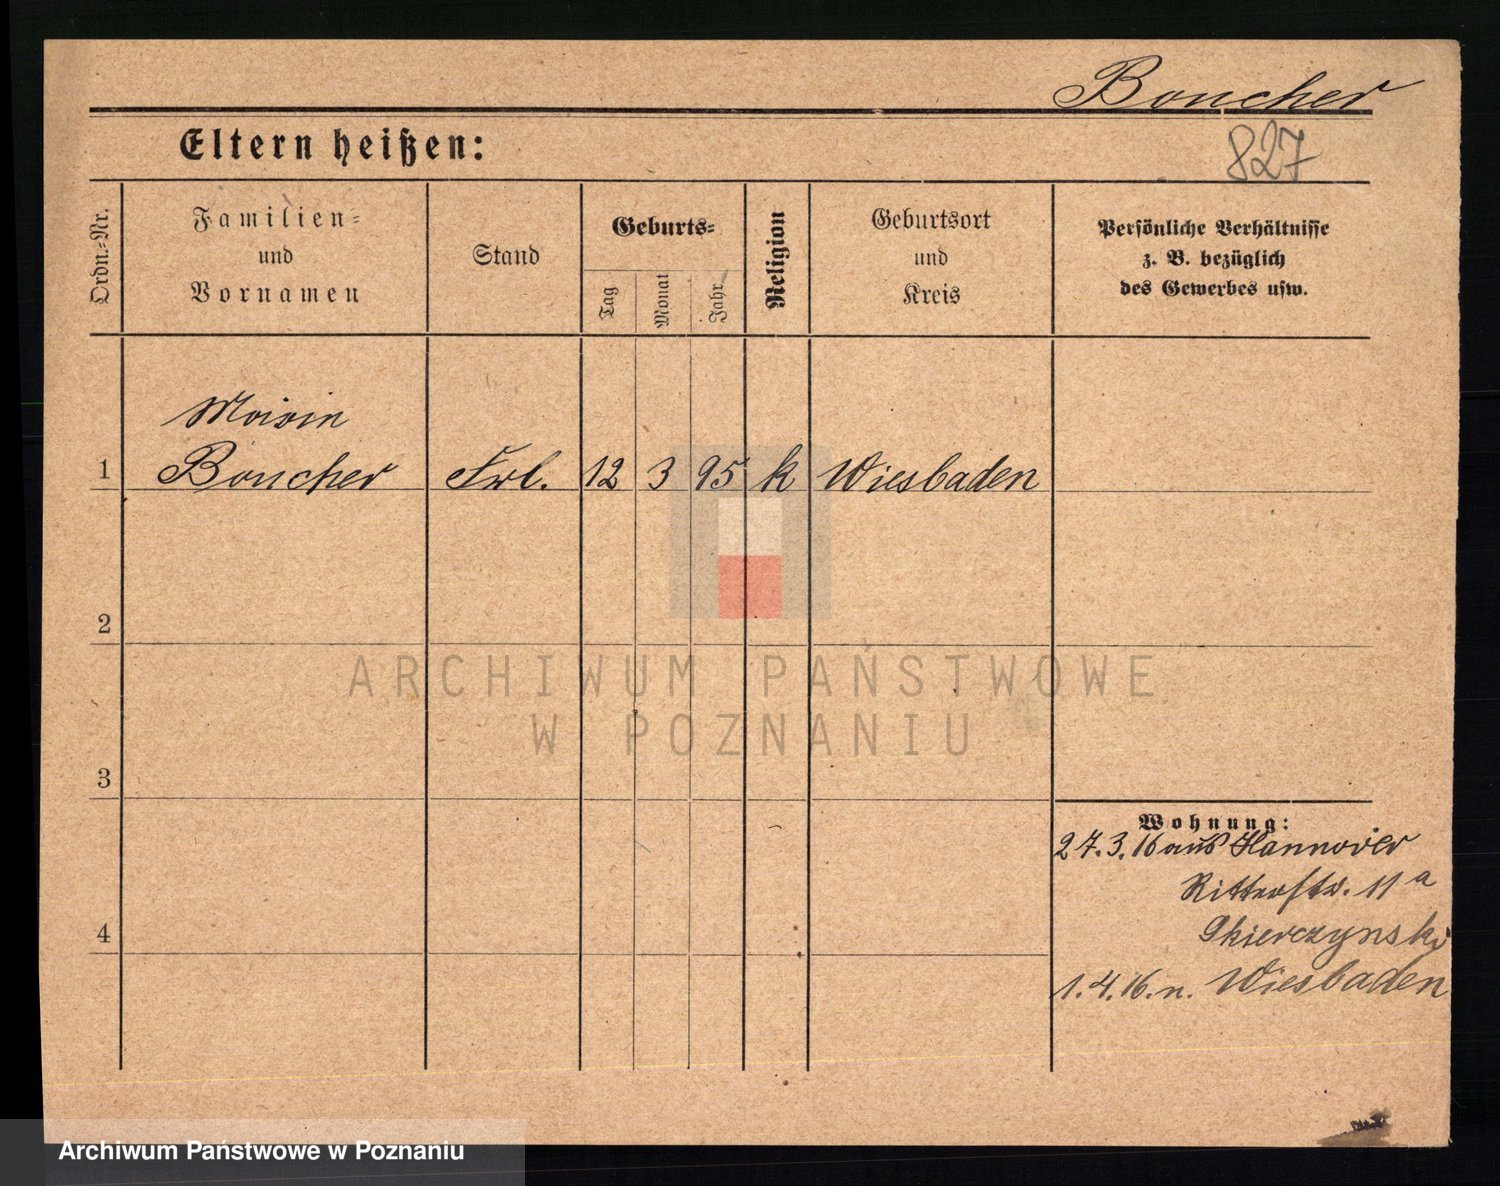 Boucher
827
Eltern heißen:
Ordn.-Nr.
Familien-
und
Vornamen
Stand
Geburts-
Tag
Monat
Jahr
Religion
Geburtsort
und
Kreis
Persönliche Verhältnisse
z. B. bezüglich
des Gewerbes usw.
1
Boucher
Frl.
12
3
95
k
Wiesbaden
2
3
4
Wohnung:
27.3.16 aus Hannover
Ritterstr. 11a
Skierczynski
1.4.16. n. Wiesbaden
ARCHIWUM PAŃSTWOWE
W POZNANIU
Archiwum Państwowe w Poznaniu